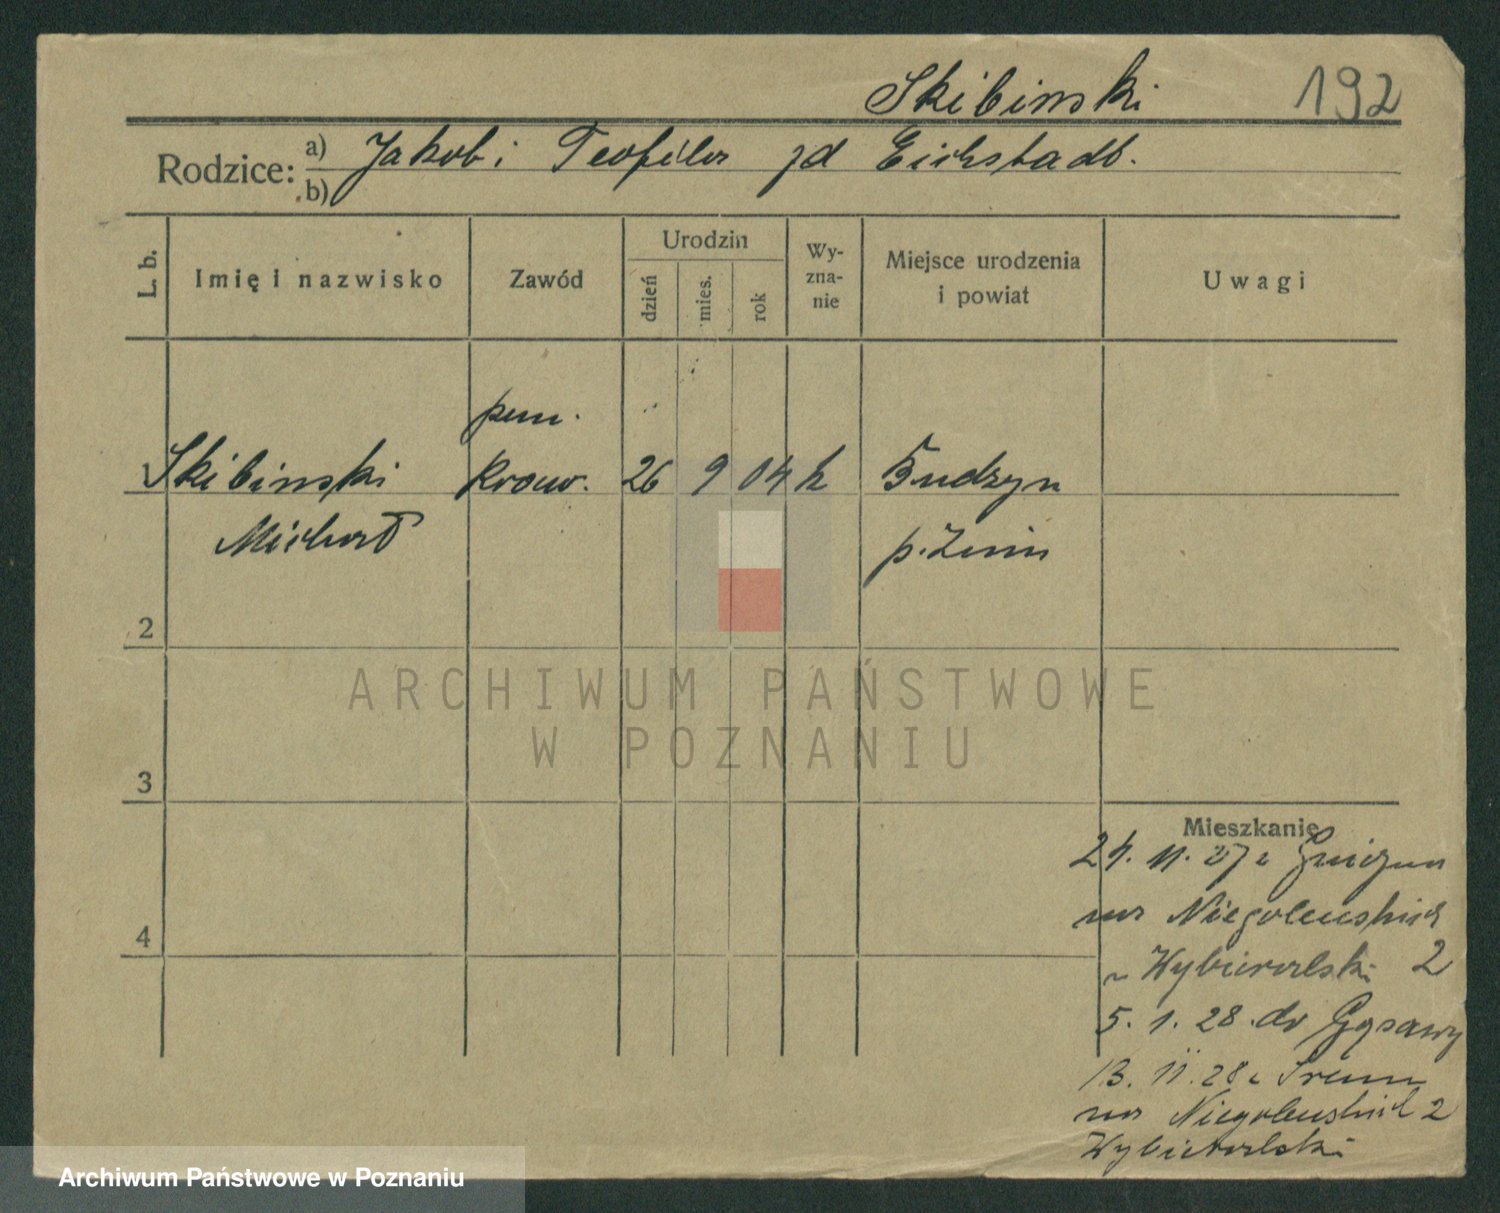 Skibinski 192
Rodzice: a) Jakob i Teofila zd Eichstadt.
b)
L. b. Imię i nazwisko Zawód Urodzin dzień mies. rok Wy-zna-nie Miejsce urodzenia i powiat Uwagi
pom.
1 Skibinski kraw. 26 9 04 k Budzyn
Michał p. Żnin
2
ARCHIWUM PAŃSTWOWE
W POZNANIU
3
Mieszkanie
24. 11. 27 z
4
na Niegolewskich
Wybieralski 2
5. 1. 28. do Gąsawy
13. 11. 28 z Śremu
na Niegolewskich 2
Wybieralski
Archiwum Państwowe w Poznaniu